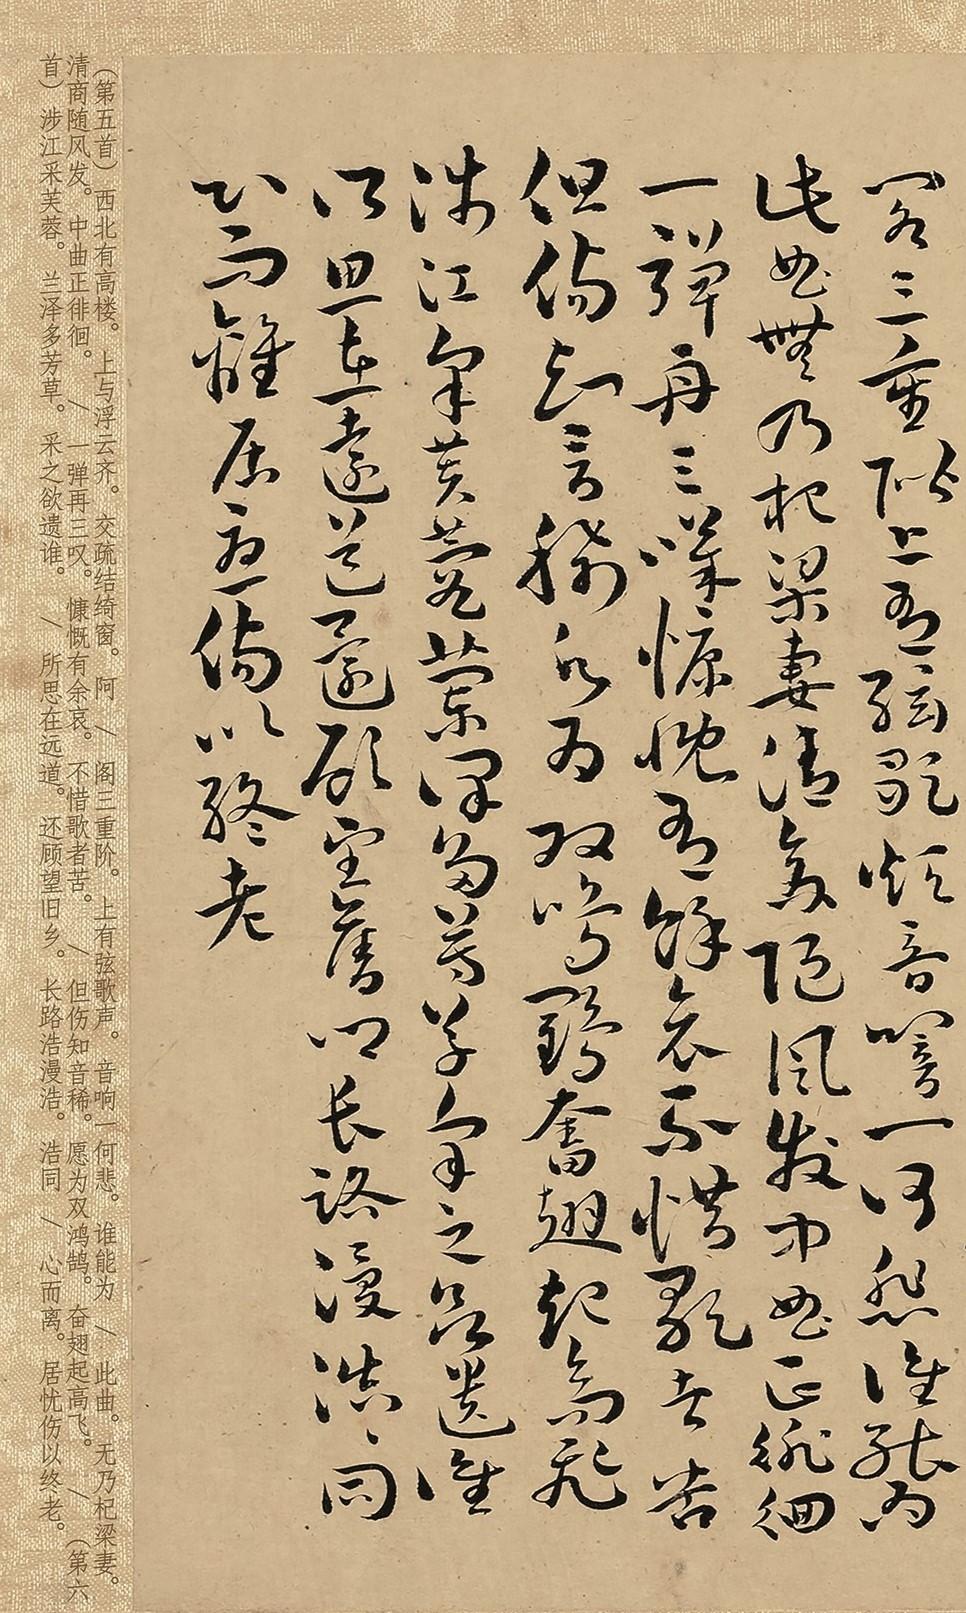 閣三重階上有絃歌聲音響一何悲誰能為
此曲無乃杞梁妻清商随風發中曲正徘徊
一彈再三嘆慷慨有餘哀不惜歌者苦
但傷知音稀願為双鳴鶴奮翅起高飛
涉江采芙蓉蘭澤多芳草采之欲遺誰
所思在遠道還顧望舊鄉長路漫浩〻同
心而離居憂傷以終老
（第五首）西北有高楼。上与浮云齐。交疏结绮窗。阿/阁三重阶。上有弦歌声。音响一何悲。谁能为/此曲。无乃杞梁妻。
清商随风发。中曲正徘徊。/一弹再三叹。慷慨有余哀。不惜歌者苦。/但伤知音稀。愿为双鸿鹄。奋翅起高飞。/（第六
首）涉江采芙蓉。兰泽多芳草。采之欲遗谁。/所思在远道。还顾望旧乡。长路浩漫浩。浩同/心而离。居忧伤以终老。